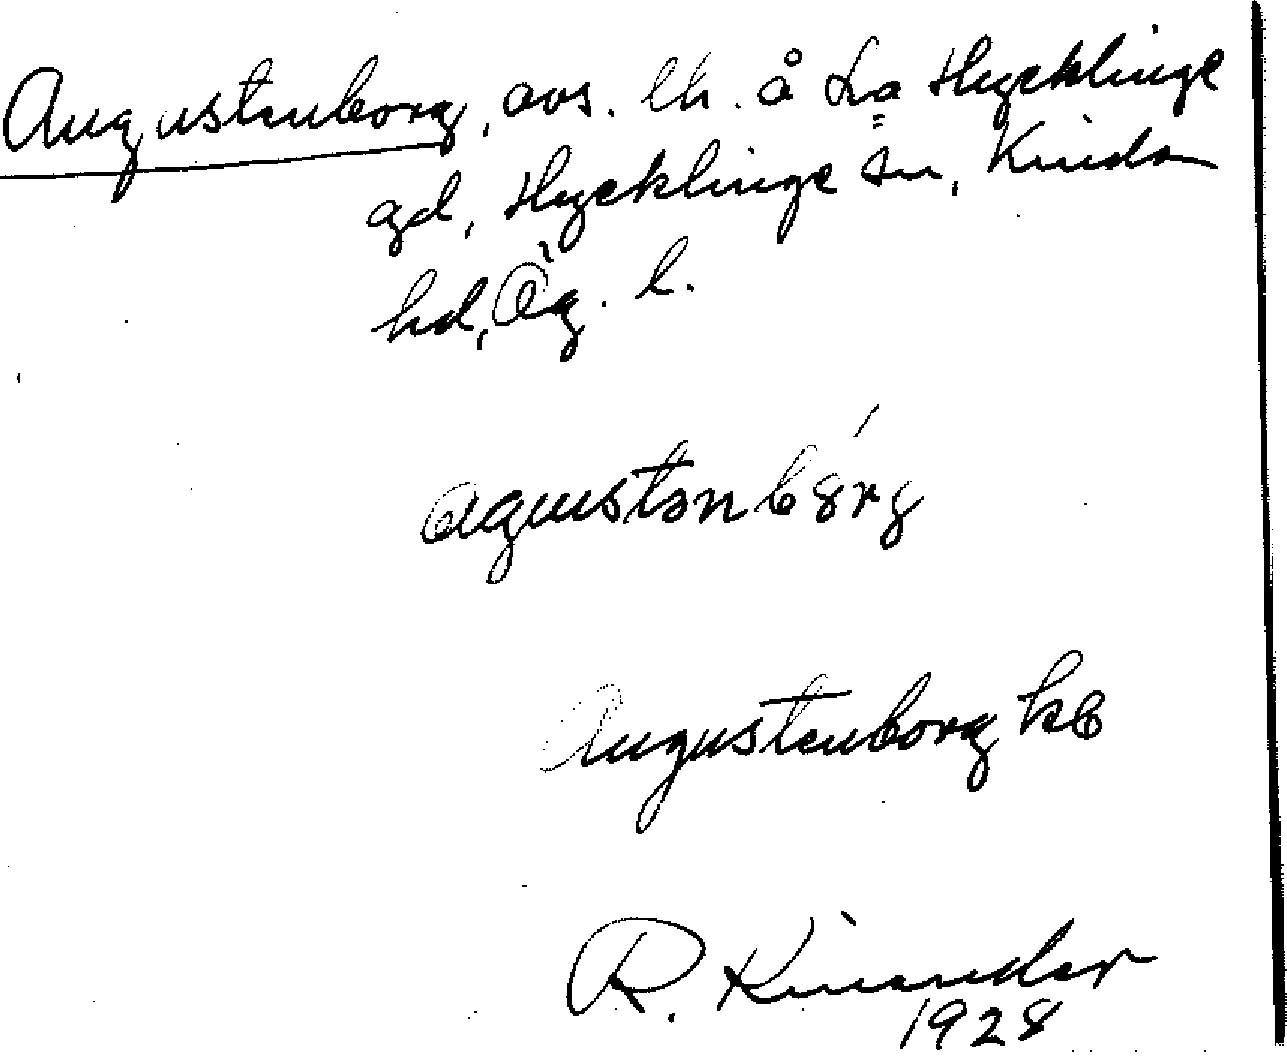 Augustenborg, avs. lh. å La Hycklinge
gd, Hycklinge sn, Kinda
hd, Ög. l.
agustanbórg
Augustenborg kb
R. Kinander
1928